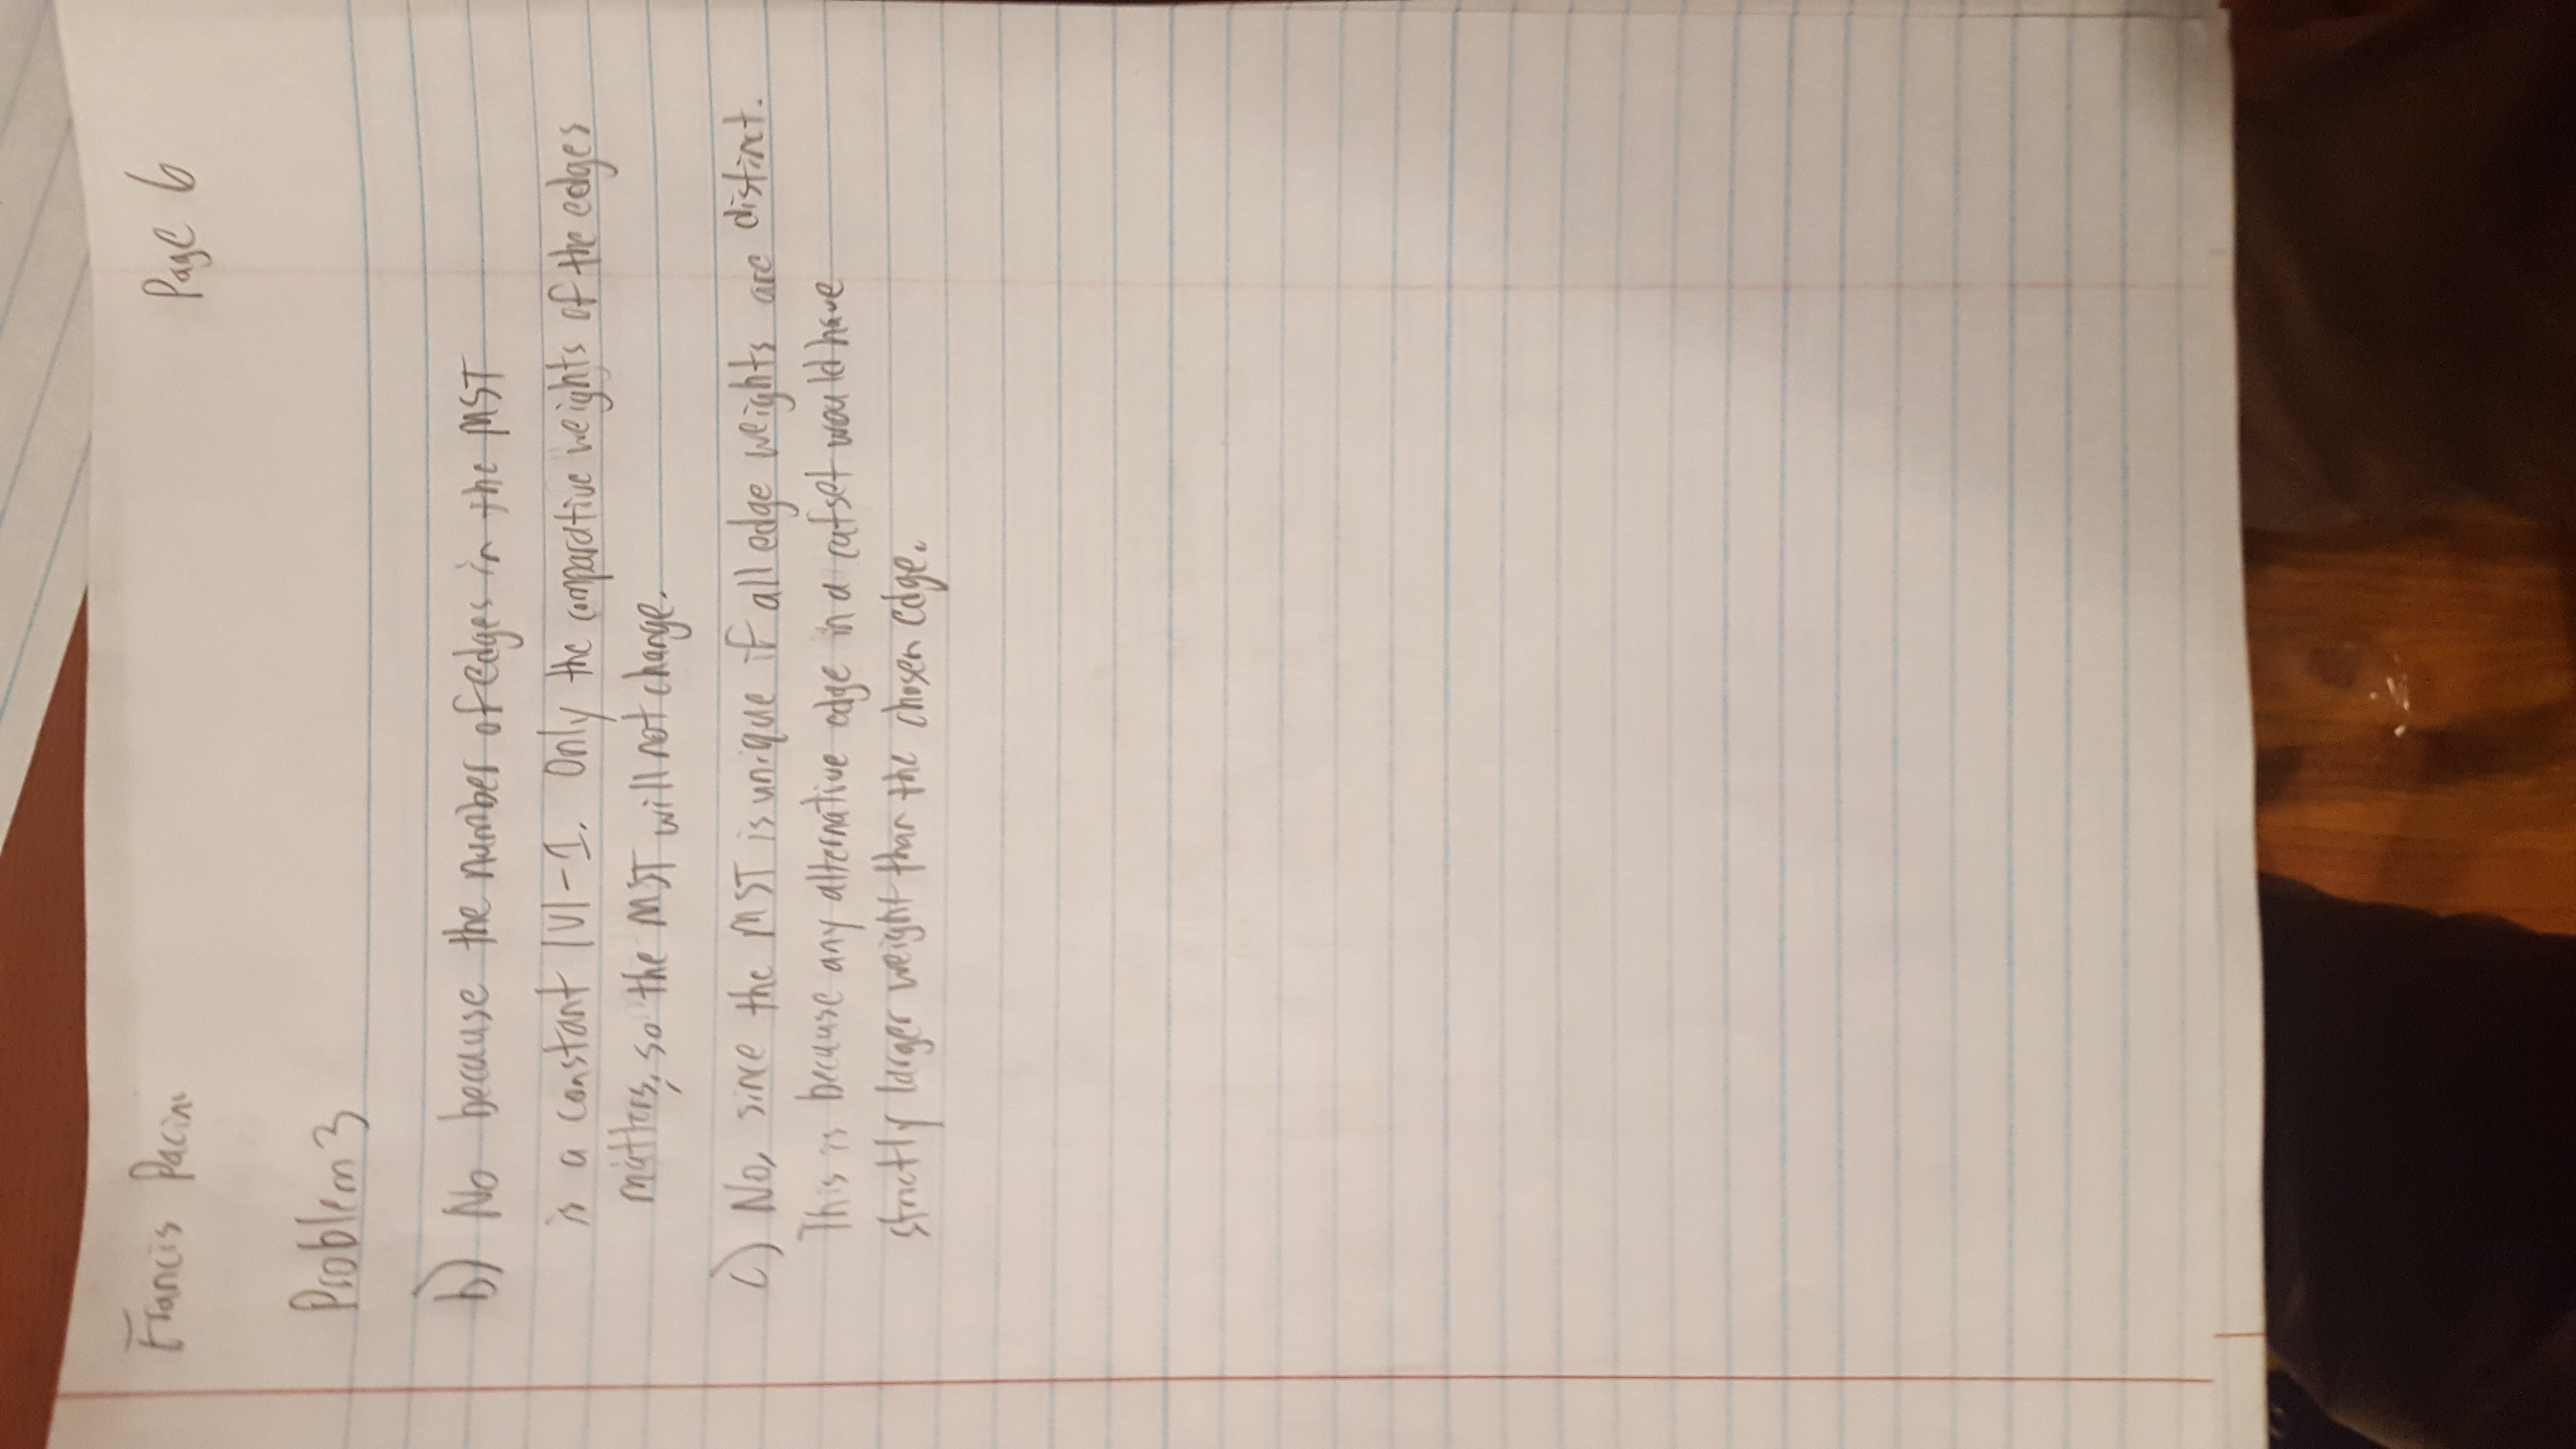 Francis Pacini
Page 6
Problem 3
b) No because the number of edges in the MST
is a constant |V|-1. Only the comparative weights of the edges
matters, so the MST will not change.
c) No, since the MST is unique if all edge weights are distinct.
This is because any alternative edge in a cutset would have
strictly larger weight than the chosen edge.